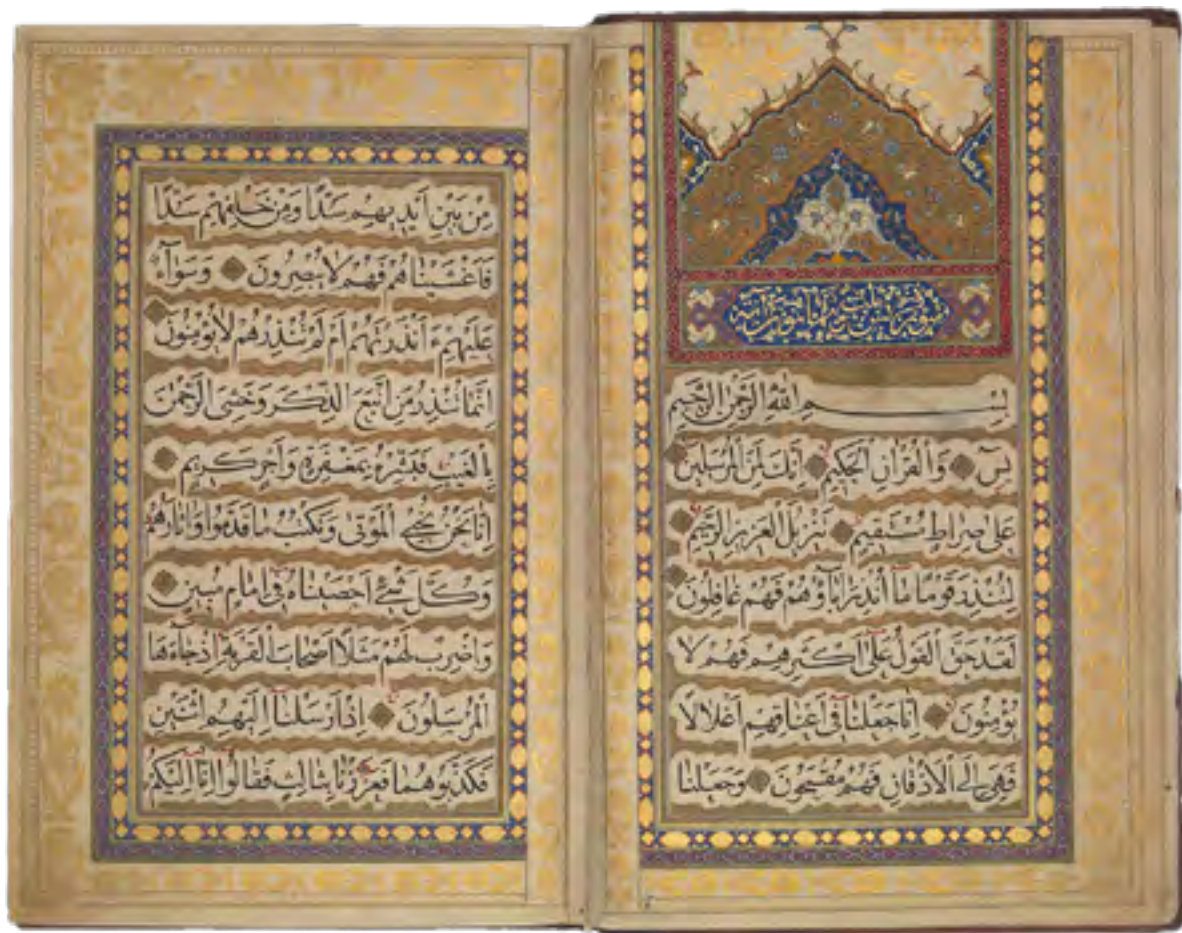 بِسْمِ اللهِ الرَّحْمٰنِ الرَّحِيمِ
يٰسٓ وَالْقُرْاٰنِ الْحَكِيمِ اِنَّكَ لَمِنَ الْمُرْسَلِينَ
عَلٰى صِرَاطٍ مُسْتَقِيمٍ تَنْزِيلَ الْعَزِيزِ الرَّحِيمِ
لِتُنْذِرَ قَوْمًا مَآ اُنْذِرَ اٰبَآؤُهُمْ فَهُمْ غَافِلُونَ
لَقَدْ حَقَّ الْقَوْلُ عَلٰٓى اَكْثَرِهِمْ فَهُمْ لَا
يُؤْمِنُونَ اِنَّا جَعَلْنَا فِٓى اَعْنَاقِهِمْ اَغْلَالًا
فَهِىَ اِلَى الْاَذْقَانِ فَهُمْ مُقْمَحُونَ وَجَعَلْنَا
مِنْ بَيْنِ اَيْدِيهِمْ سَدًّا وَمِنْ خَلْفِهِمْ سَدًّا
فَاَغْشَيْنَاهُمْ فَهُمْ لَا يُبْصِرُونَ وَسَوَآءٌ
عَلَيْهِمْ ءَاَنْذَرْتَهُمْ اَمْ لَمْ تُنْذِرْهُمْ لَا يُؤْمِنُونَ
اِنَّمَا تُنْذِرُ مَنِ اتَّبَعَ الذِّكْرَ وَخَشِىَ الرَّحْمٰنَ
بِالْغَيْبِ فَبَشِّرْهُ بِمَغْفِرَةٍ وَاَجْرٍ كَرِيمٍ
اِنَّا نَحْنُ نُحْيِى الْمَوْتٰى وَنَكْتُبُ مَا قَدَّمُوا وَاٰثَارَهُمْ
وَكُلَّ شَىْءٍ اَحْصَيْنَاهُ فِٓى اِمَامٍ مُبِينٍ
وَاضْرِبْ لَهُمْ مَثَلًا اَصْحَابَ الْقَرْيَةِ اِذْ جَآءَهَا
الْمُرْسَلُونَ اِذْ اَرْسَلْنَآ اِلَيْهِمُ اثْنَيْنِ
فَكَذَّبُوهُمَا فَعَزَّزْنَا بِثَالِثٍ فَقَالُوٓا اِنَّآ اِلَيْكُمْ